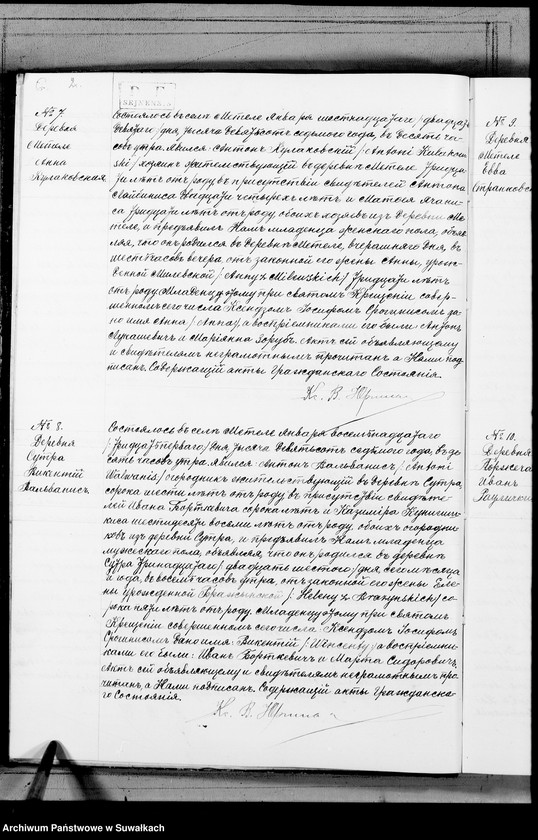 2.
SEJNENSIS
№ 7.
Деревня
Метеле
Анна
Кулаковская
Состоялось въ селѣ Метеле Января шестнадцатаго /двадцать
девятаго/ дня, тысяча девятьсотъ седьмого года, въ десять ча-
совъ утра. Явился Антонъ Кулаковскій /Antoni Kulakow-
ski/ жительствующій въ деревнѣ Метеле, тридца-
ти лѣтъ отъ роду, въ присутствіи свидѣтелей Антона
тридцати четырехъ лѣтъ и Матвея
тридцати лѣтъ отъ роду, обоихъ хозяевъ изъ деревни Ме-
теле, и предъявилъ Намъ младенца женскаго пола, объяв-
ляя, что онъ родился въ деревнѣ Метеле, вчерашняго дня, въ
шесть часовъ вечера, отъ законной его жены Анны, урож-
денной Милевской /Anny z Milewskich/ тридцати лѣтъ
отъ роду. Младенцу этому при святомъ Крещеніи совер-
шенномъ сего числа Ксендзомъ Іосифомъ да-
но имя Анна /Anna/, а воспріемниками его были Антонъ
Лукашевичъ и Маріанна Зорубъ. Актъ сей объявляющему
и свидѣтелямъ неграмотнымъ прочитанъ а Нами под-
писанъ. Содержащій акты Гражданскаго Состоянія.
Кс. В.
№ 8.
Деревня
Сутра
Викентій
Вальванисъ
Состоялось въ селѣ Метеле Января восемнадцатаго
/тридцать перваго/ дня, тысяча девятьсотъ седьмого года, въ де-
сять часовъ утра. Явился Антонъ Вальванисъ /Antoni
Walwanis/ огородникъ жительствующій въ деревнѣ Сутра,
сорока шести лѣтъ отъ роду, въ присутствіи свидѣте-
лей Ивана Борткевича сорока лѣтъ и Казиміра
шестидесяти восьми лѣтъ отъ роду, обоихъ огородни-
ковъ изъ деревни Сутра, и предъявилъ Намъ младенца
мужескаго пола, объявляя, что онъ родился въ деревнѣ
Сутра тринадцатаго /двадцать шестого/ дня, сего мѣсяца
и года, въ восемь часовъ утра, отъ законной его жены Еле-
ны урожденной /Heleny z / со-
рока пяти лѣтъ отъ роду. Младенцу этому при святомъ
Крещеніи совершенномъ сего числа Ксендзомъ Іосифомъ
дано имя: Викентій /Wincenty/ а воспріемни-
ками его были: Иванъ Борткевичъ и Марта Сидоровичъ.
Актъ сей объявляющему и свидѣтелямъ неграмотнымъ про-
читанъ, а Нами подписанъ. Содержащій акты Гражданска-
го Состоянія.
Кс. В.
№ 9.
Деревня
Метеле
Ева
№ 10.
Деревня
Иванъ
Archiwum Państwowe w Suwałkach